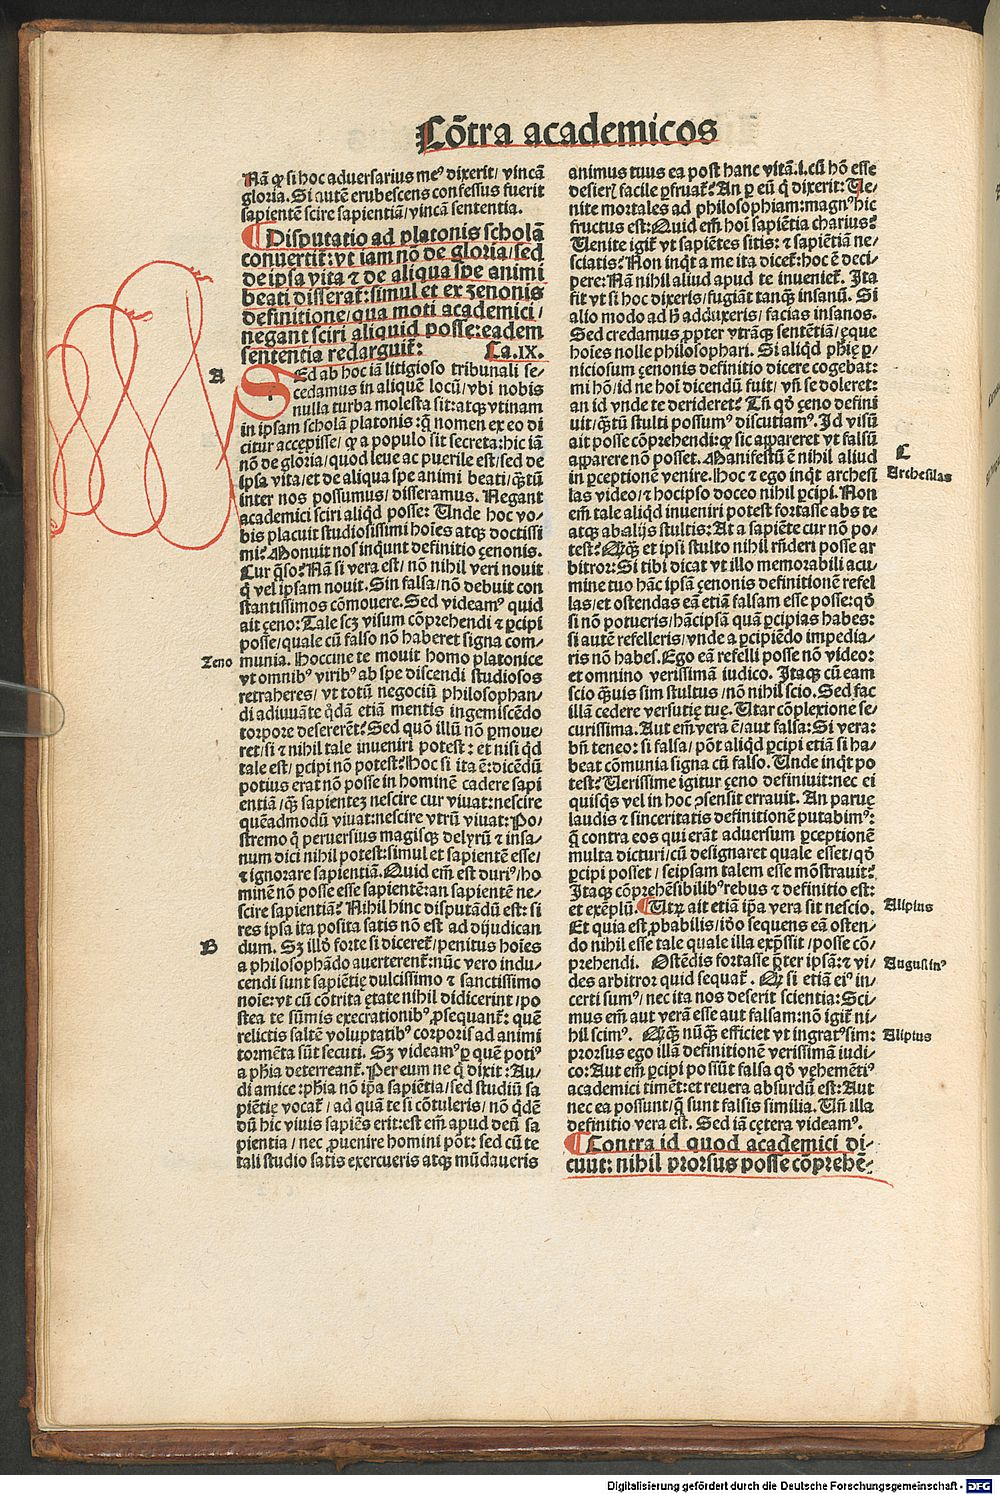 Cōtra academicos
Nā qꝫ si hoc aduersarius me⁹ dixerit/ vincā
gloria. Si autē erubescens confessus fuerit
sapientē scire sapientiā/ vincā sententia.
¶Disputatio ad platonis scholā
conuertit̄: vt iam nō de gloria/ sed
de ipsa vita ⁊ de aliqua spe animi
beati disserat̄: simul et ex zenonis
definitione/ qua moti academici/
negant sciri aliquid posse: eadem
sententia redarguit̄: Ca.IX.
A
SEd ab hoc iā litigioso tribunali se-
cedamus in aliquē locū/ vbi nobis
nulla turba molesta sit: atqꝫ vtinam
in ipsam scholā platonis: q̄ nomen ex eo di
citur accępisse/ qꝫ a populo sit secreta: hic iā
nō de gloria/ quod leue ac puerile est/ sed de
ipsa vita/ et de aliqua spe animi beati/ q̄tū
inter nos possumus/ disseramus. Negant
academici sciri aliqd̄ posse: Unde hoc vo-
bis placuit studiosissimi hoīes atqꝫ doctissi
mi? Monuit nos inqūnt definitio ęenonis.
Cur q̄so? Nā si vera est/ nō nihil veri nouit
q̄ vel ipsam nouit. Sin falsa/ nō debuit con
stantissimos cōmouere. Sed videam⁹ quid
ait ęeno: Tale scꝫ visum cōprehendi ⁊ ꝑcipi
posse/ quale cū falso nō haberet signa com-
Zeno
munia. Hoccine te mouit homo platonice
vt omnib⁹ virib⁹ ab spe discendi studiosos
retraheres/ vt totū negociū philosophan-
di adiuuāte q̄dā etiā mentis ingemiscēdo
torpore desererēt? Sed quō illū nō ꝑmoue
ret/ si ⁊ nihil tale inueniri potest: et nisi qd̄
tale est/ ꝑcipi nō potest? Hoc si ita ē: dicēdū
potius erat nō posse in hominē cadere sapi
entiā/ q̄ꝫ sapientez nescire cur viuat: nescire
quēadmodū viuat: nescire vtrū viuat: Po-
stremo q̄ peruersius magisqꝫ delyrū ⁊ insa-
num dici nihil potest: simul et sapientē esse/
⁊ ignorare sapientiā. Quid em̄ est duri⁹/ ho
minē nō posse esse sapientē: an sapientē ne-
scire sapientiā? Nihil hinc disputādū est: si
res ipsa ita posita satis nō est ad dijudican
B
dum. Sꝫ illd̄ forte si diceret̄/ penitus hoīes
a philosophādo auerterent̄: nūc vero indu-
cendi sunt sapiētię dulcissimo ⁊ sanctissimo
noīe: vt cū cōtrita ętate nihil didicerint/ po
stea te sūmis execrationib⁹ ꝓsequant̄: quē
relictis saltē voluptatib⁹ corporis ad animi
tormēta sūt secuti. Sꝫ videam⁹ ꝑ quē poti⁹
a phīa deterreant̄. Per eum ne q̄ dixit: Au-
di amice: phīa nō ip̄a sapiētia/ sed studiū sa
piētię vocat̄/ ad quā te si cōtuleris/ nō q̄dē
dū hic viuis sapiēs erit: est em̄ apud deū sa
pientia/ nec ꝓuenire homini pōt: sed cū te
tali studio satis exercueris atqꝫ mūdaueris
animus tuus ea post hanc vitā .i. cū hō esse
desier̄/ facile ꝑfruat̄? An ꝑ eū q̄ dixerit: Ue-
nite mortales ad philosophiam: magn⁹ hic
fructus est: Quid em̄ hoī sapiētia charius?
Uenite igit̄ vt sapiētes sitis: ⁊ sapiētiā ne-
sciatis? Non inqt̄ a me ita dicet̄: hoc ē deci-
pere: Nā nihil aliud apud te inueniet̄. Ita
fit vt si hoc dixeris/ fugiāt tanqꝫ insanū. Si
alio modo ad h̄ adduxeris/ facias insanos.
Sed credamus ꝓpter vtrāqꝫ sententiā/ ęque
hoīes nolle philosophari. Si aliqd̄ phīę ꝑ-
niciosum ęenonis definitio dicere cogebat:
mi hō/ id ne hoī dicendū fuit/ vn̄ se doleret:
an id vnde te derideret? Tn̄ qd̄ ęeno defini
uit/ q̄tū stulti possum⁹ discutiam⁹. Id visū
ait posse cōprehendi: qd̄ sic appareret vt falsū
C
apparere nō posset. Manifestū ē nihil aliud
in ꝑceptionē venire. Hoc ⁊ ego inqt̄ archesi
Archesilas
las video/ ⁊ hocipso doceo nihil ꝑcipi. Non
em̄ tale aliqd̄ inueniri potest fortasse abs te
atqꝫ ab alijs stultis: At a sapiēte cur nō po-
test? Q̄qꝫ et ipsi stulto nihil rn̄deri posse ar
bitror: Si tibi dicat vt illo memorabili acu-
mine tuo hāc ipsam ęenonis definitionē refel
las/ et ostendas eā etiā falsam esse posse: qd̄
si nō potueris/ hācipsā quā ꝑcipias habes:
si autē refelleris/ vnde a ꝑcipiēdo impedia-
ris nō habes. Ego eā refelli posse nō video:
et omnino verissimā iudico. Itaqꝫ cū eam
scio q̄uis sim stultus/ nō nihil scio. Sed fac
illā cedere versutię tuę. Utar cōplexione se-
curissima. Aut em̄ vera ē/ aut falsa: Si vera:
bn̄ teneo: si falsa/ pōt aliqd̄ ꝑcipi etiā si ha-
beat cōmunia signa cū falso. Unde inqt̄ po
test? Uerissime igitur ęeno definiuit: nec ei
quisqꝫ vel in hoc ꝯsensit errauit. An paruę
laudis ⁊ sinceritatis definitionē putabim⁹:
q̄ contra eos qui erāt aduersum ꝑceptionē
multa dicturi/ cū designaret quale esset/ qd̄
ꝑcipi posset/ seipsam talem esse mōstrauit?
Itaqꝫ cōprehēsibilib⁹ rebus ⁊ definitio est:
et exēplū. ¶Utꝝ ait etiā ip̄a vera sit nescio.
Alipius
Et quia est ꝓbabilis/ iō sequens eā osten-
do nihil esse tale quale illa exp̄ssit/ posse cō-
prehendi. Ostēdis fortasse p̄ter ipsā: ⁊ vi-
Augustin⁹
des arbitror quid sequat̄. Qꝫ si etiā ei⁹ in-
certi sum⁹/ nec ita nos deserit scientia: Sci-
mus em̄ aut verā esse aut falsam: nō igit̄ ni-
hil scim⁹. Q̄qꝫ nūq̄ꝫ efficiet vt ingrat⁹ sim:
Alipius
prorsus ego illā definitionē verissimā iudi-
co: Aut em̄ ꝑcipi possūt falsa qd̄ vęhemēti⁹
academici timēt: et reuera absurdū est: Aut
nec ea possunt/ q̄ sunt falsis similia. Un̄ illa
definitio vera est. Sed iā cętera videam⁹.
¶Contra id quod academici di-
cūt: nihil prorsus posse cōprehē-
Digitalisierung gefördert durch die Deutsche Forschungsgemeinschaft - DFG